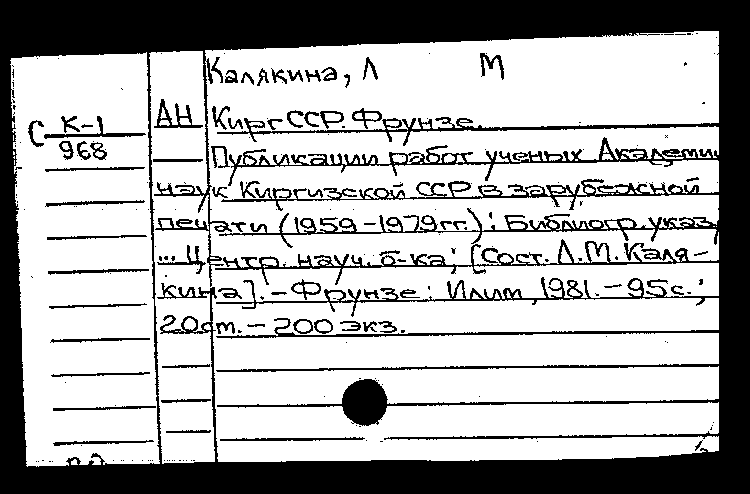 Калякина, Л М
С К-1
968
АН Кирг ССР. Фрунзе.
Публикации работ ученых Академии
наук Киргизской ССР в зарубежной
печати (1959-1979 гг.): Библиогр. указ.
... Центр. науч. б-ка; [Сост. Л.М. Каля-
кина]. - Фрунзе: Илим, 1981. - 95 с.;
20 cm. - 200 экз.